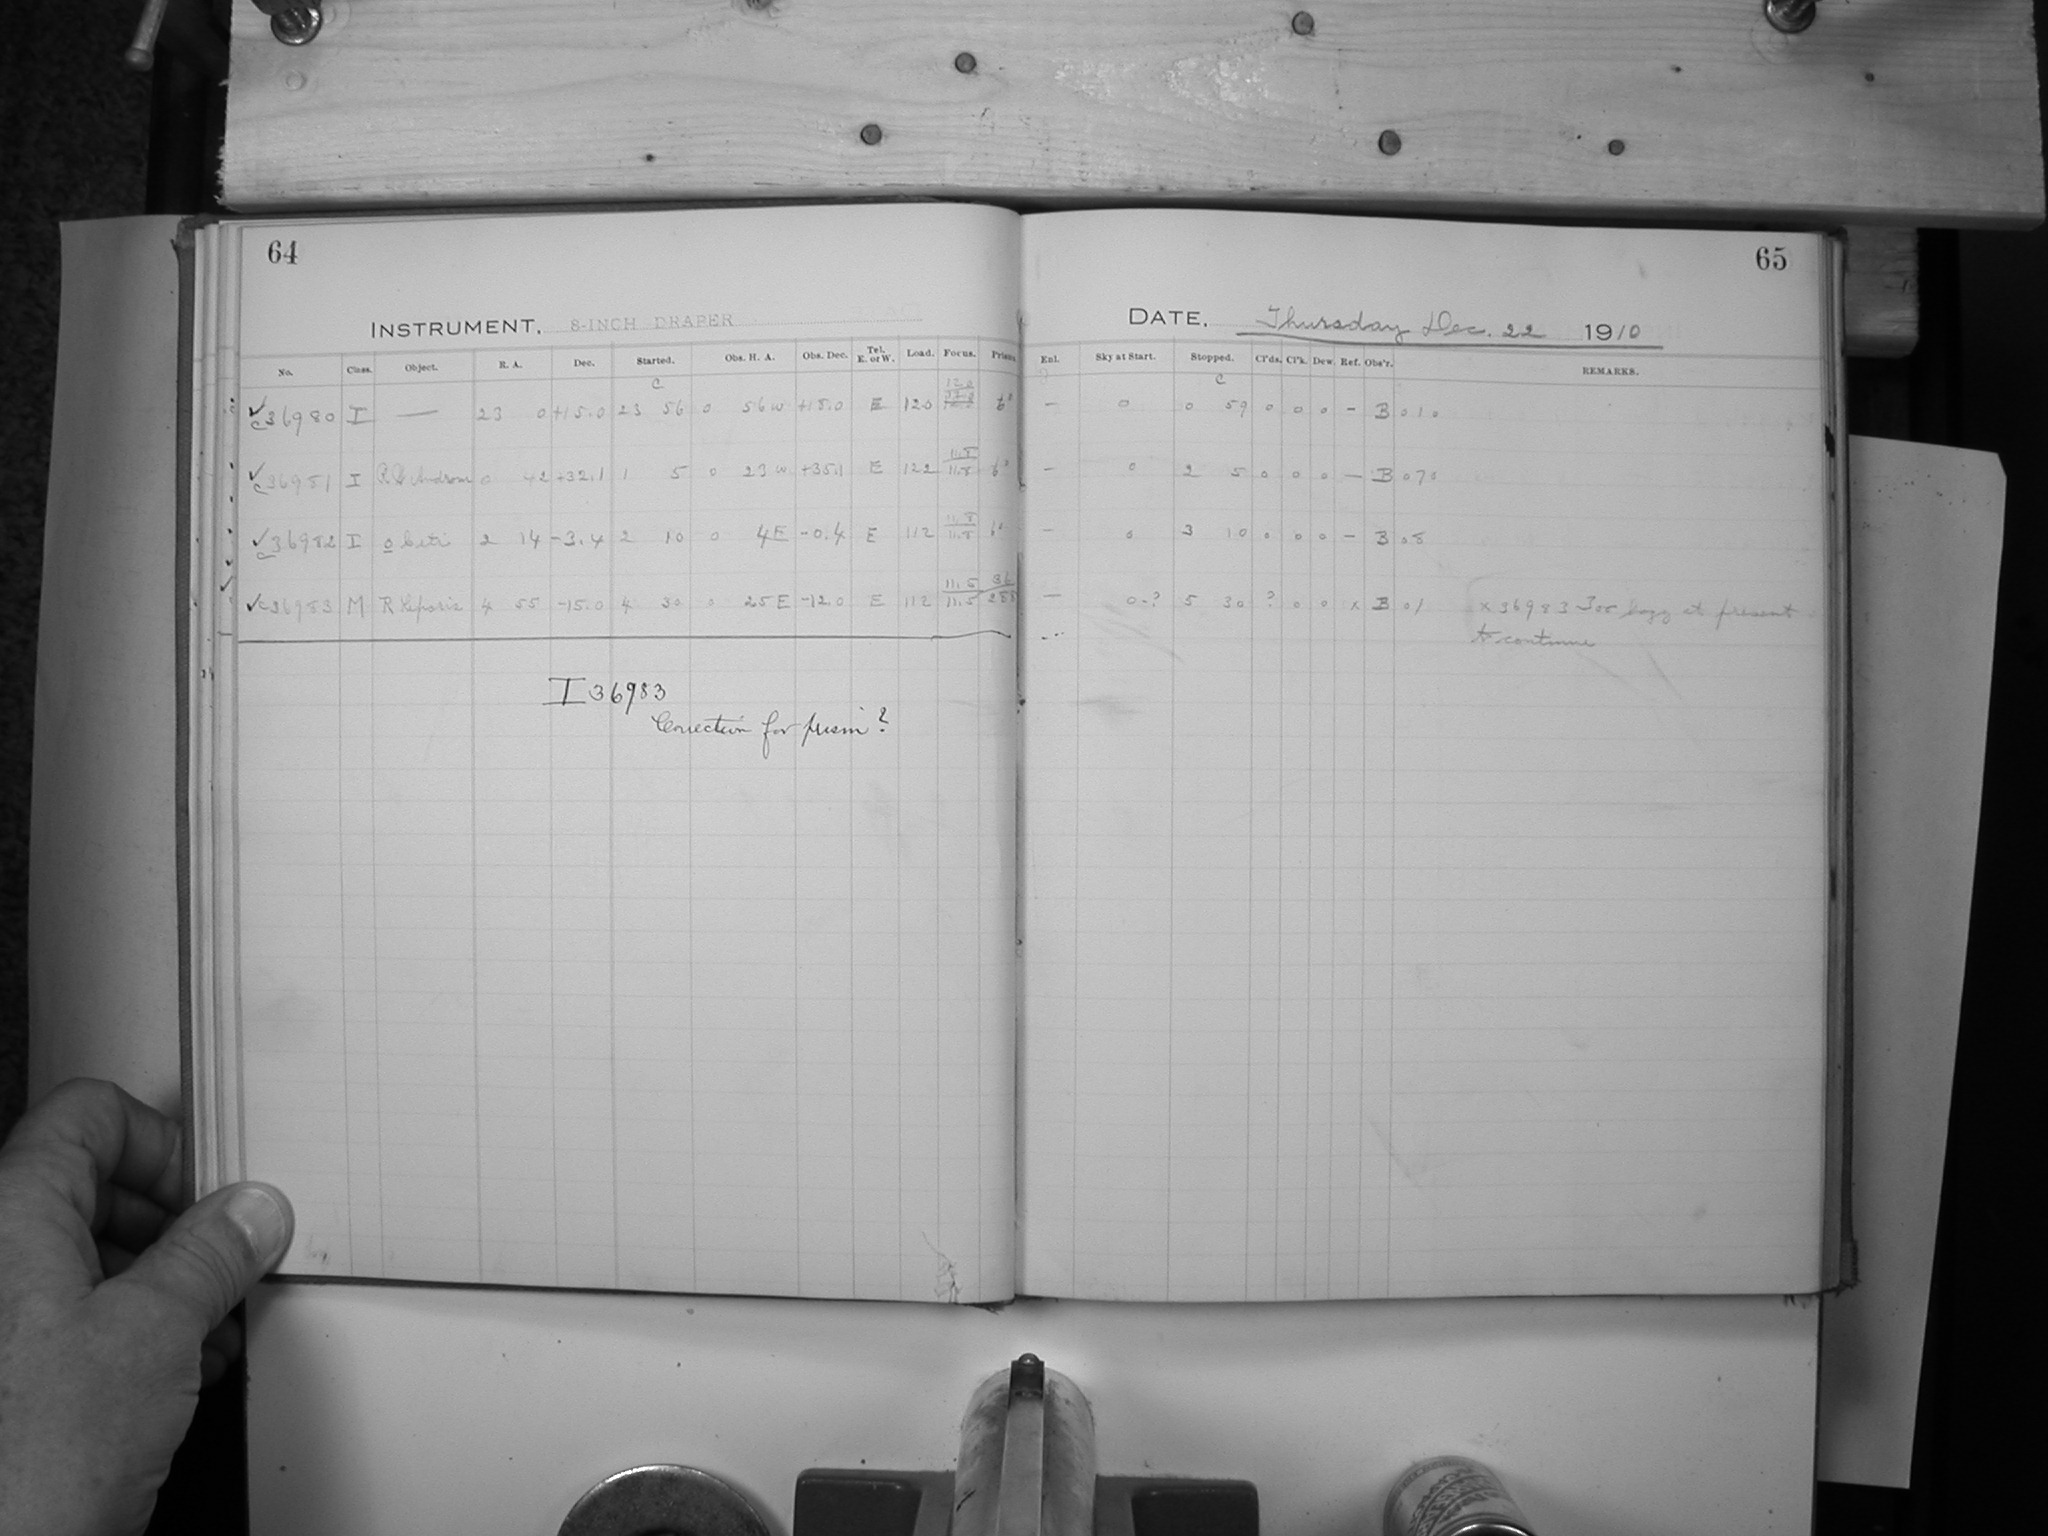 64
65
INSTRUMENT, 8-INCH DRAPER
DATE, Thursday Dec. 22 1910
No. Class. Object. R. A. Dec. Started. Obs. H. A. Obs. Dec. Tel. E. or W. Load. Focus. Prism. Enl. Sky at Start. Stopped. Cl'ds. Cl'k. Dew. Ref. Obs'r. REMARKS.
C C
✓ c36980 I — 23 0 +15.0 23 56 0 56 W +18.0 E 120 12.0 6° — 0 0 59 0 0 0 — B 010
✓ c36981 I 0 42 +32.1 1 5 0 23 W +35.1 E 122 11.8 11.8 6° — 0 2 5 0 0 0 — B 070
✓ c36982 I o Ceti 2 14 -3.4 2 10 0 4 E -0.4 E 112 11.8 11.8 6° — 0 3 10 0 0 0 — B 08
✓ c36983 M R Leporis 4 55 -15.0 4 30 0 25 E -12.0 E 112 11.5 11.5 36 288 — 0-? 5 30 ? 0 0 x B 01 x 36983 Too hazy at present
to continue
I 36983
Correction for prism?